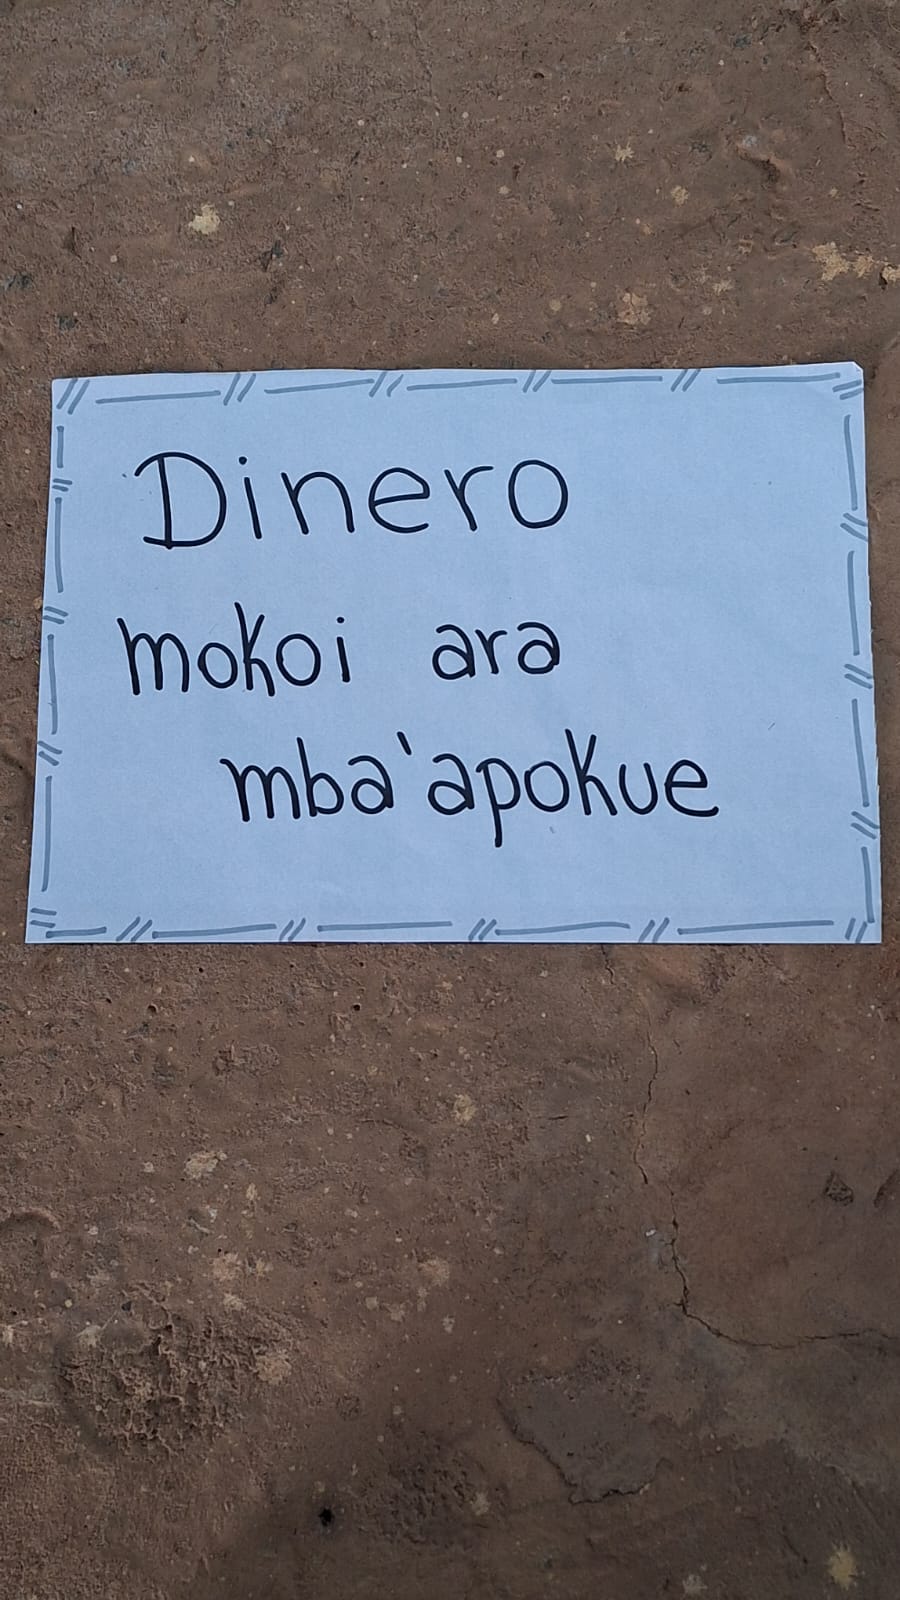 Dinero
mokoi ara
mba'apokue